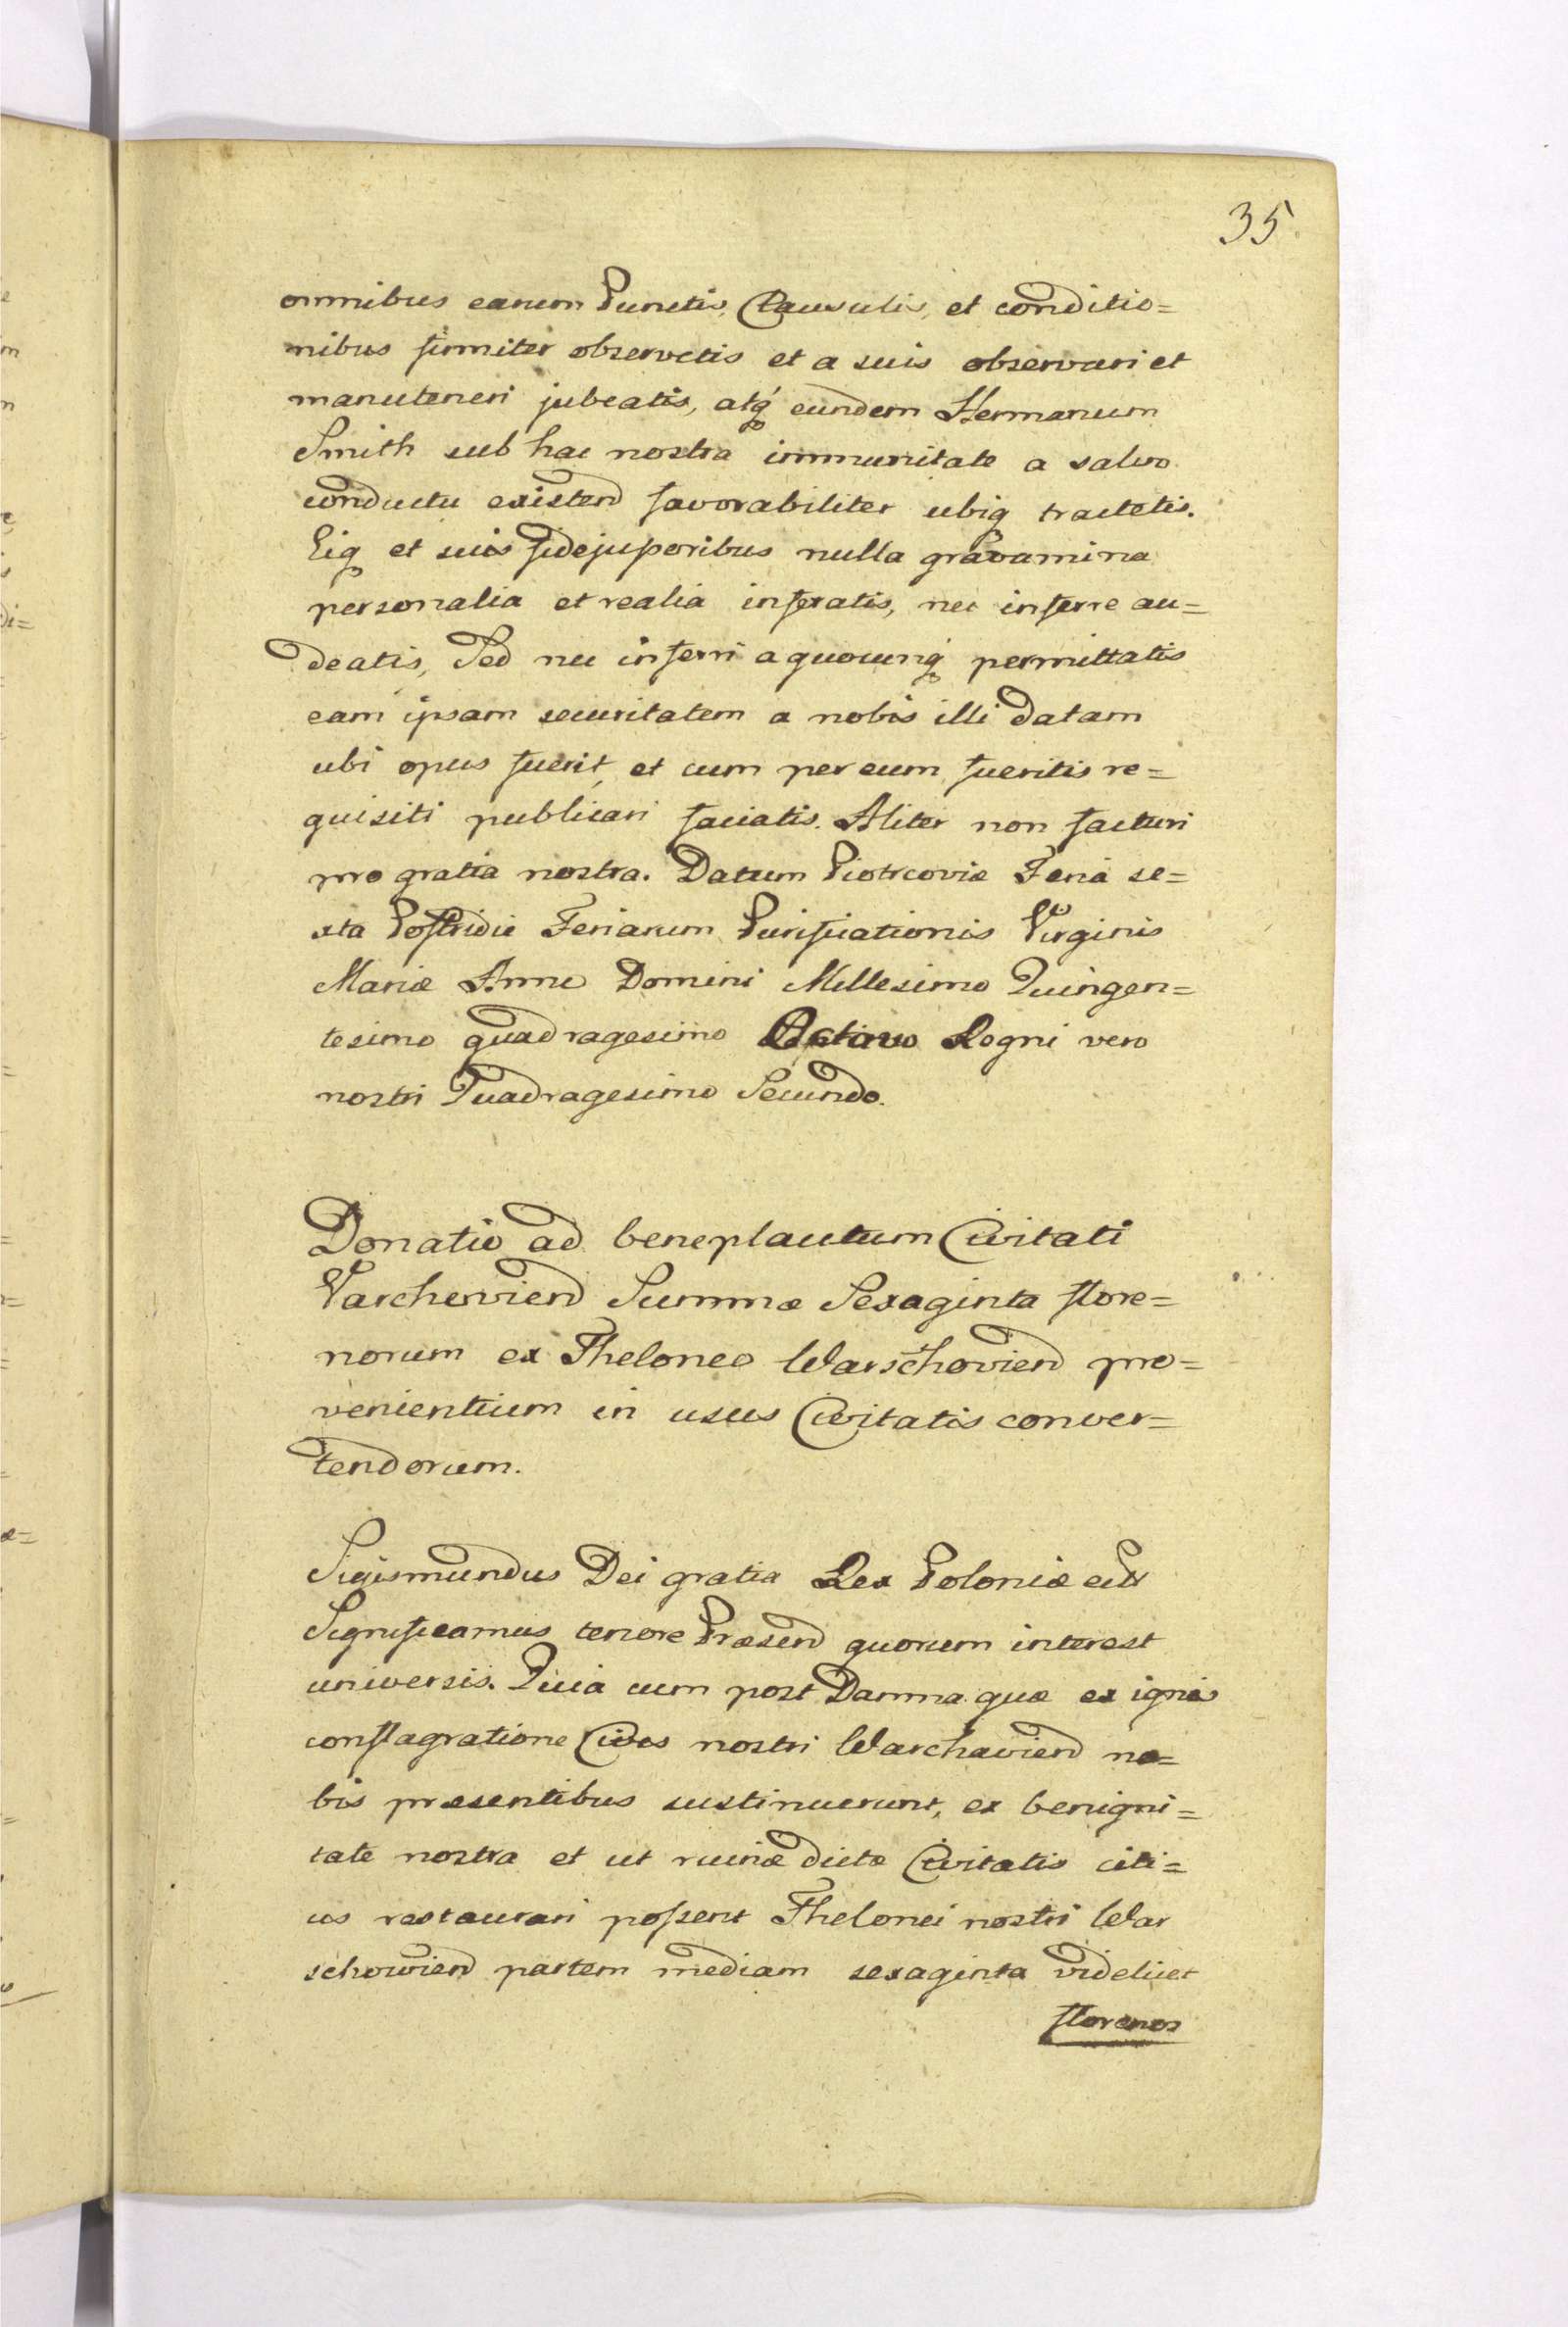 35
omnibus earum Punctis, Clausulis, et conditio=
nibus firmiter observetis et a suis observari et
manuteneri jubeatis, atq́ eundem Hermanum
Smith sub hac nostra immunitate a salvo
conductu existend favorabiliter ubiq tractetis.
Eiq et suis fidejußoribus nulla gravamina
personalia et realia inferatis, nec inferre au=
deatis, Sed nec inferri a quocunq́ permittatis
eam ipsam securitatem a nobis illi datam
ubi opus fuerit, et cum per eum fueritis re=
quisiti publicari faciatis. Aliter non facturi
pro gratia nostra. Datum Piotrcoviæ Feria se=
xta Postridie Feriarum Purificationis Virginis
Mariæ Anno Domini Millesimo Quingen=
tesimo quadragesimo Octavo Regni vero
nostri Quadragesimo Secundo.
Donatio ad beneplacitum Civitati
Varchoviend Summæ Sexaginta flore=
norum ex Theloneo Warschoviend pro=
venientium in usus Civitatis conver=
tendorum.
Sigismundus Dei gratia Rex Poloniæ etc
Significamus tenore Præsend quorum interest
universis. Quia cum post Damna quæ ex ignis
conflagratione Cives nostri Warchaviend no=
bis præsentibus sustinuerunt, ex benigni=
tate nostra et ut ruinæ dictæ Civitatis citi=
us restaurari poßent Thelonei nostri War
schowiend partem mediam sexaginta videlicet
florenos